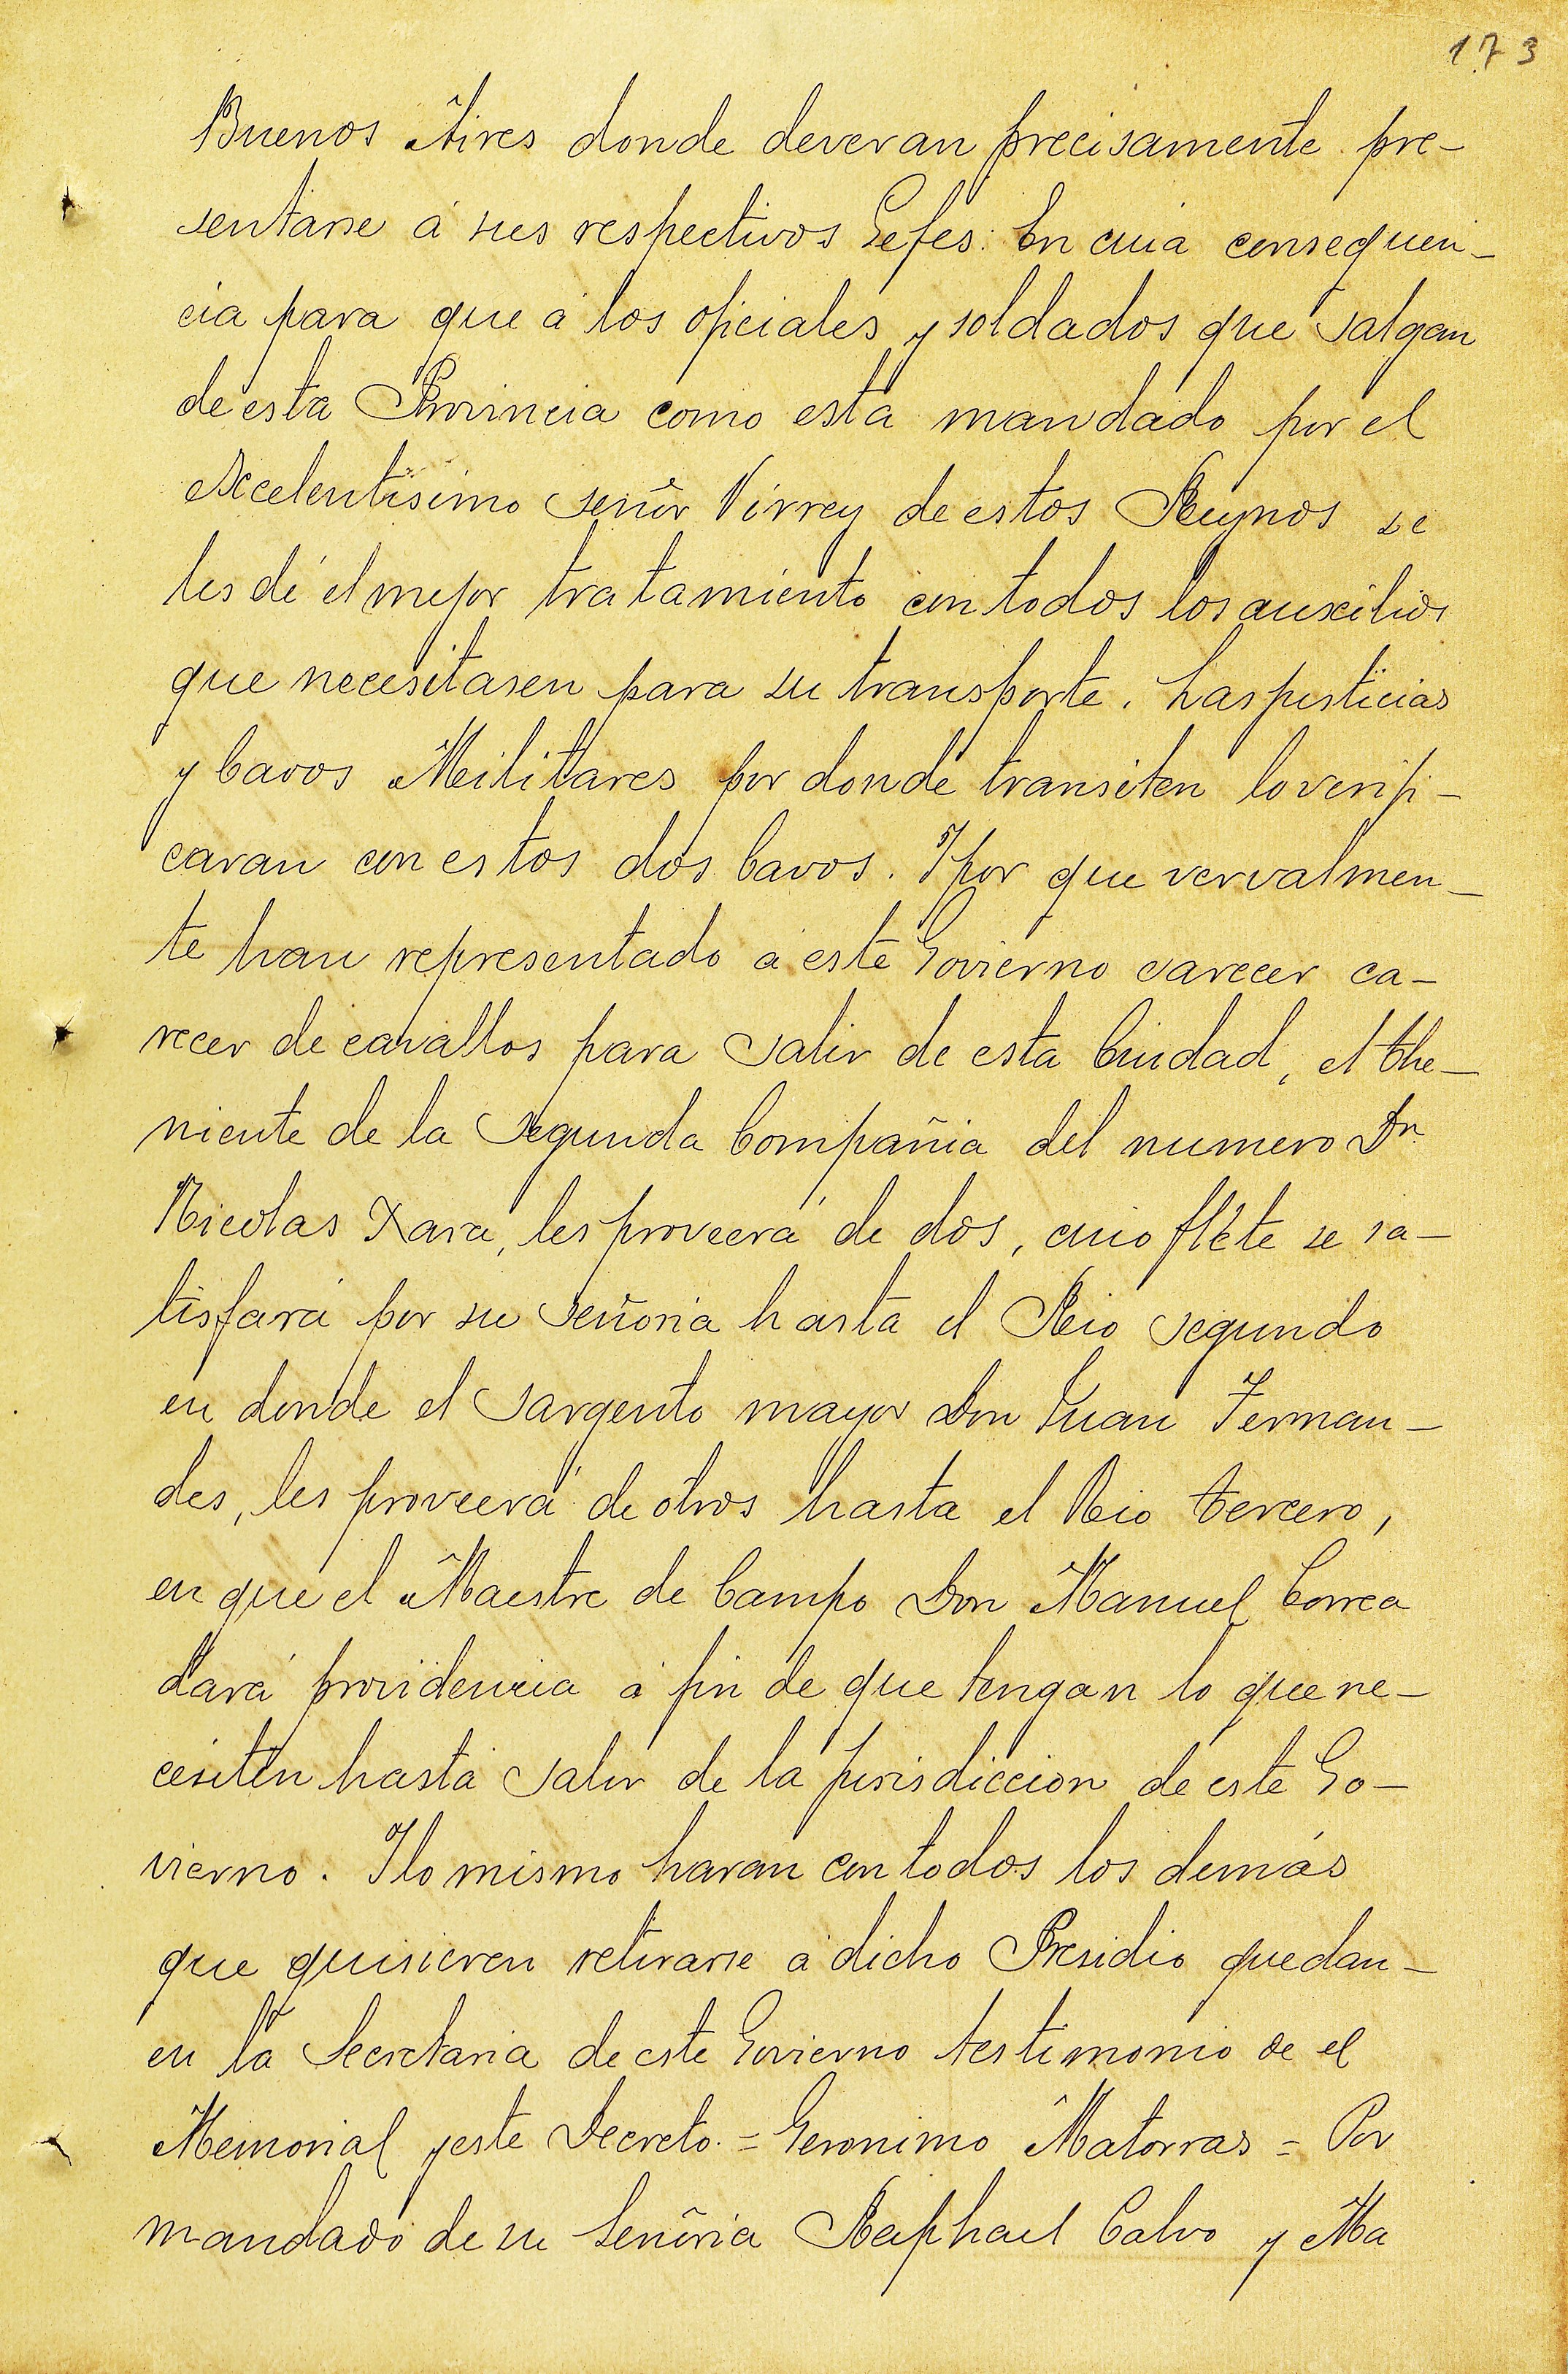 173
Buenos Aires donde deveran precisamente pre-
sentarse á sus respectivos Gefes: En cuia consequen-
cia para que á los oficiales y soldados que salgan
de esta Provincia como está mandado por el
Excelentisimo señor Virrey de estos Reynos se
les dé el mejor tratamiento con todos los auxilios
que necesitasen para su transporte. Las justicias
y Cavos Militares por donde transiten lo verifi-
caran con estos dos Cavos. Y por que vervalmen-
te han representado á este Govierno carecer ca-
recer de cavallos para salir de esta Ciudad, el The-
niente de la segunda Compañia del numero Dn
Nicolas Xara, les proveerá de dos, cuio fléte se sa-
tisfará por su señoria hasta el Rio segundo
en donde el sargento mayor Don Juan Fernan-
des, les proveerá de otros hasta el Rio tercero,
en que el Maestre de Campo Don Manuel Correa
dará providencia á fin de que tengan lo que ne-
cesiten hasta salir de la jurisdiccion de este Go-
vierno. Y lo mismo haran con todos los demás
que quisieren retirarse á dicho Presidio quedan-
en la Secretaria de este Govierno testimonio de el
Memorial y este Decreto. = Geronimo Matorras = Por
mandado de su Señoria Raphael Calvo y Ma